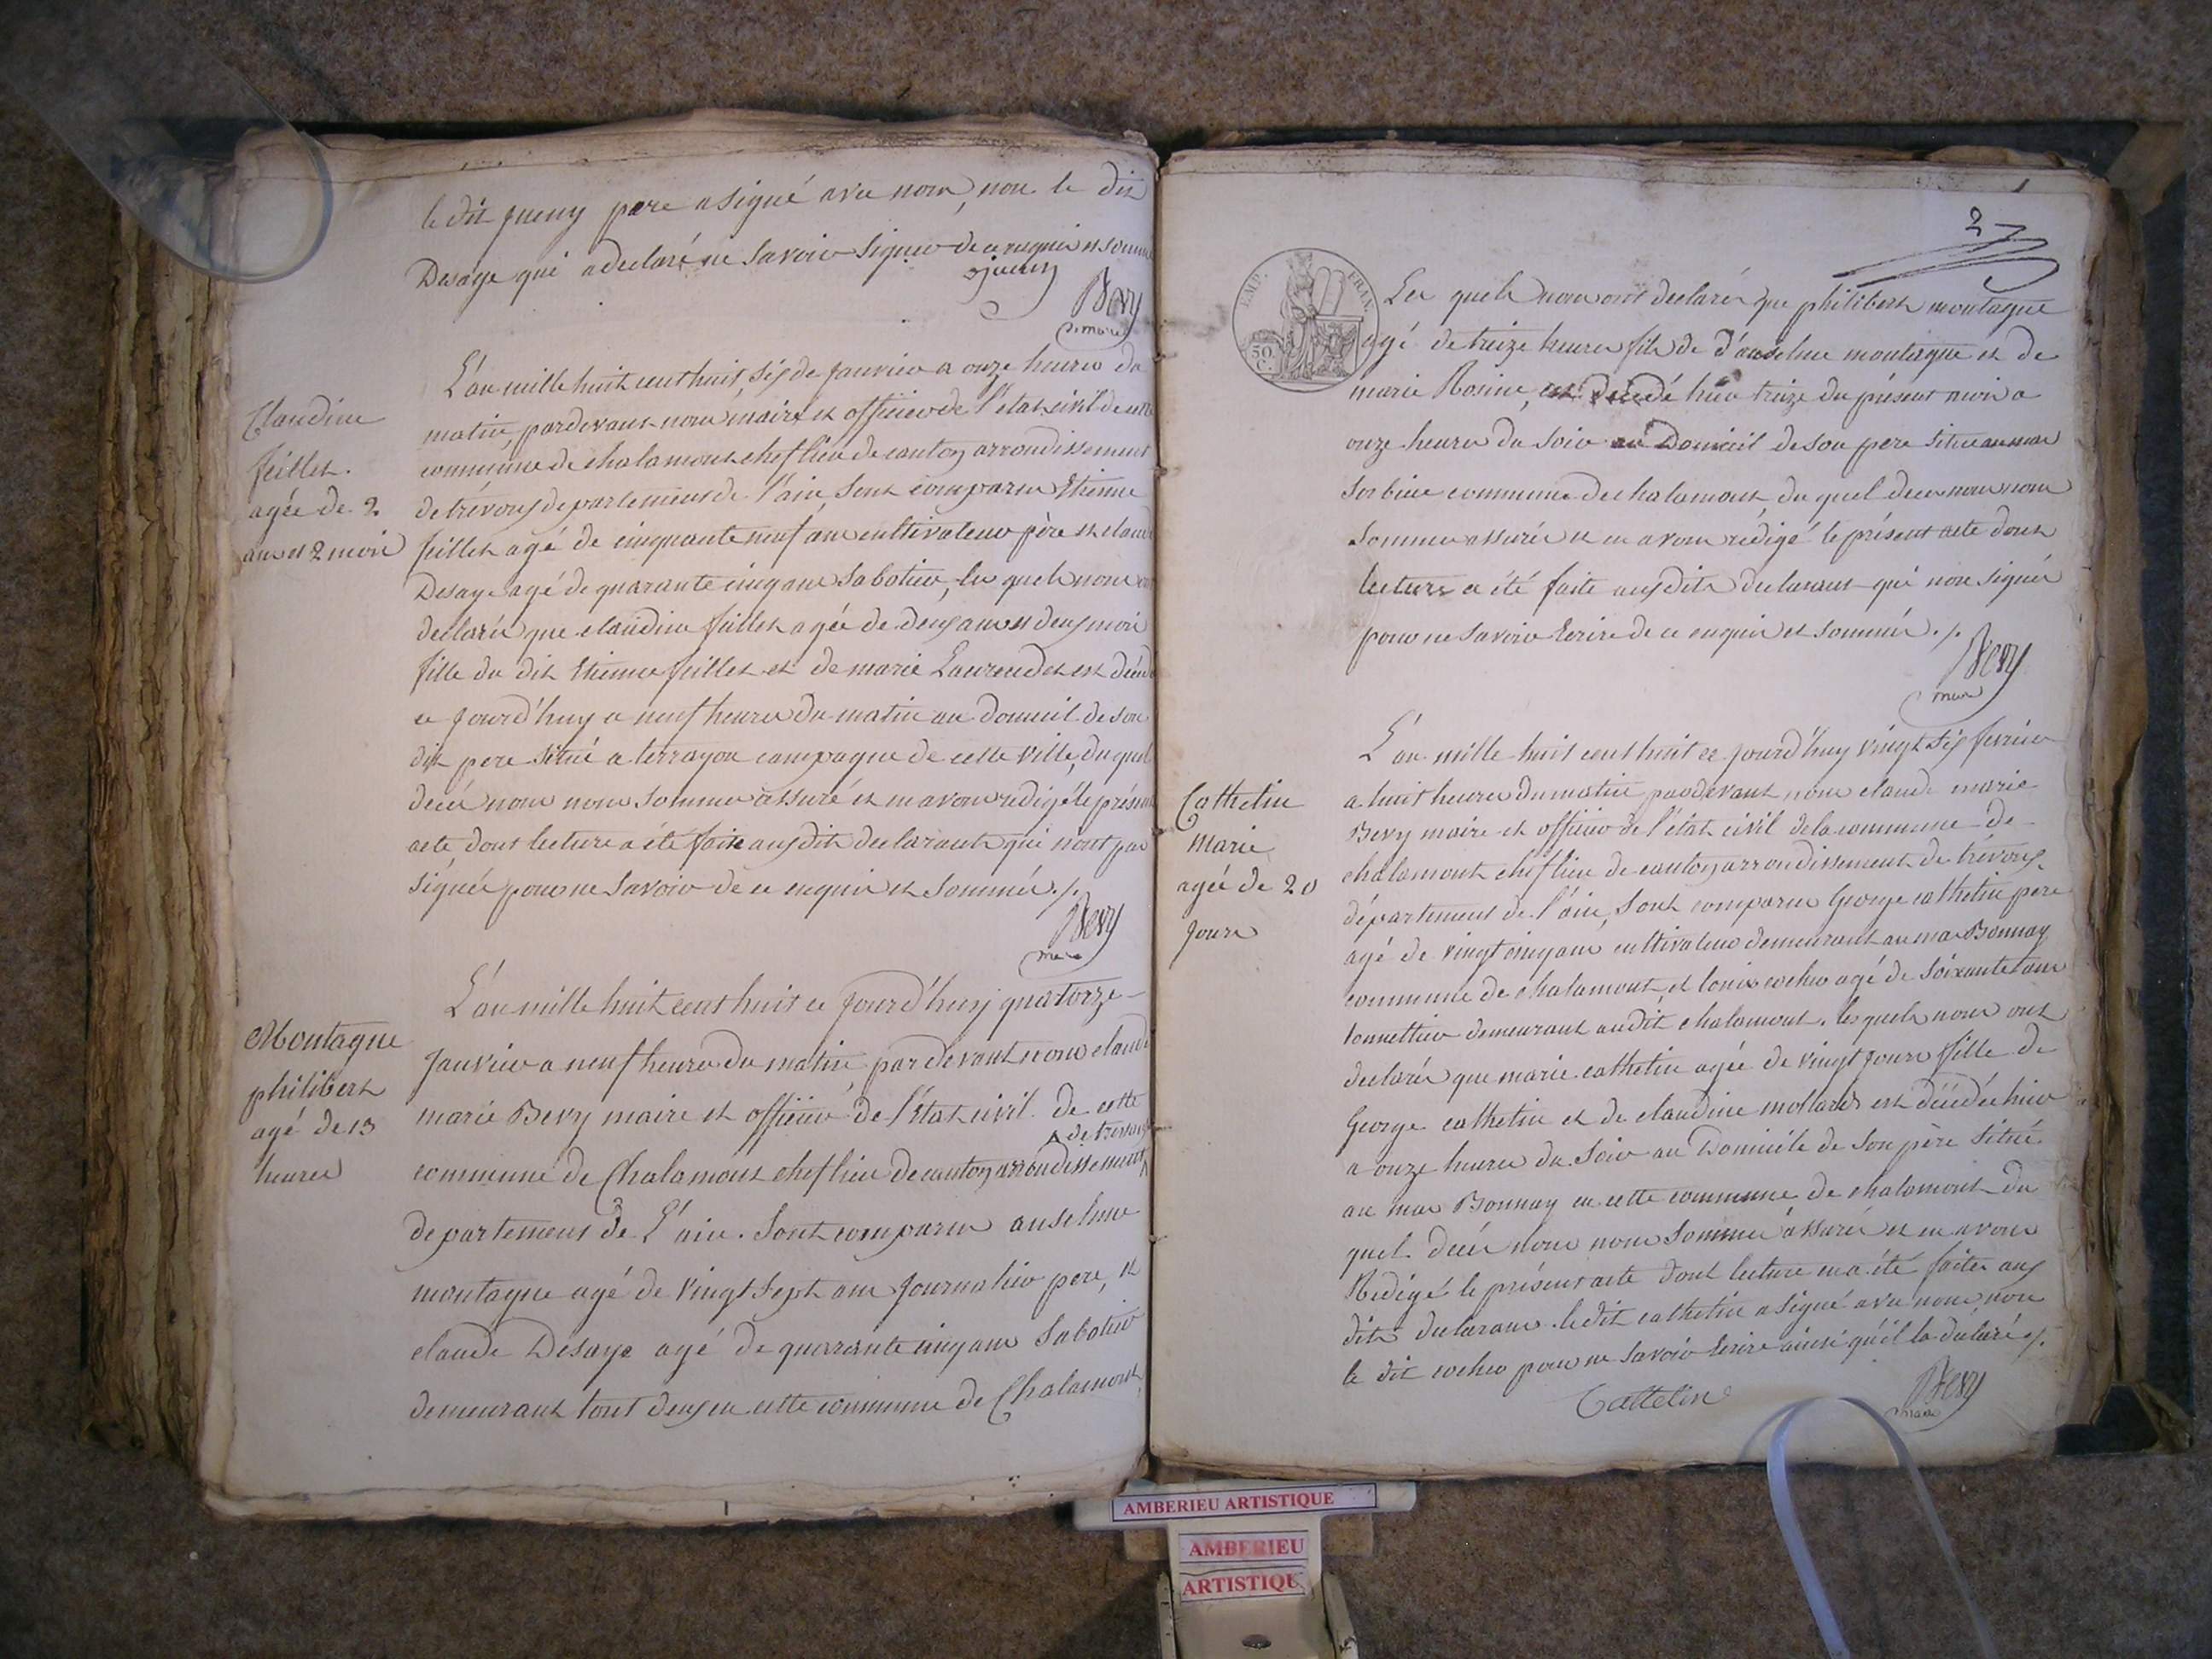 le dit jueny pere a signé avec nous, non le dit
Desaye qui a declaré ne savoir signer de ce requis et sommé
Bevy
maire
Claudine
feillet.
agée de 2
ans et 2 mois
L'an mille huit cent huit, six de janvier a onze heures du
matin, pardevant nous maire et officier de l'etat civil de
commune de chalamont chef lieu de canton arrondissement
de trévoux departement de l'ain, sont comparus Etienne
feillet agé de cinquante neuf ans cultivateur père et claude
Desaye agé de quarante cinq ans sabotier, les quels nous ont
declarés que claudine feillet agée de deux ans et deux mois
fille du dit Etienne feillet et de marie Laurendet est décédé
ce jourd'huy a neuf heures du matin au domicil de son
dit pere situé a terrayou campagne de cette ville, du quel
decés nous nous sommes assuré et en avons redigé le présent
acte, dont lecture a été faite aux dits declarants qui n'ont pas
signés pour ne savoir de ce enquis et sommés ./.
Bevy
maire
Montagne
philibert
agé de 13
heures
L'an mille huit cent huit ce jourd'huy quatorze
janvier a neuf heures du matin, par devant nous claude
marie Bevy maire et officier de l'état civil de cette
de trevoux
commune de Chalamont chef lieu de canton arrondissement
departement de l'ain. Sont comparus anselme
montagne agé de vingt sept ans journalier pere, et
claude Desaye agé de quarante cinq ans sabotier
demeurant tout deux en cette commune de Chalamont
2
EMP. FRAN.
50 C.
Les quels nous ont declarés que philibert montagne
agé de treize heures fils de d'anselme montagne et de
marie Rosine, est décédé hier treize du présent mois a
onze heures du soir au Domicil de son pere situé au mas
sorbier commune de chalamont, du quel deces nous nous
sommes assurés et en avons redigé le présent acte dont
lecture a été faite aux dits declarant qui non signés
pour ne savoir Ecrire de ce enquis et sommés ./.
Bevy
maire
Cathelin
Marie
agée de 20
jours
L'an mille huit cent huit ce jourd'huy vingt six fevrier
a huit heures du matin pardevant nous claude marie
Bevy maire et officier de l'état civil de la commune de
chalamont chef lieu de canton arrondissement de trévoux
département de l'ain, sont comparus George cathelin pere
agé de vingt cinq ans cultivateur demeurant au mas Bonnay
commune de chalamont, et louis cocher agé de soixante ans
tonnellier demeurant audit chalamont. les quels nous ont
declarés que marie cathelin agée de vingt jours fille de
George cathelin et de claudine mollard est décédée hier
a onze heures du soir au Domicile de son père situé
au mas Bonnay en cette commune de chalamont du
quel decés nous nous sommes assurés et en avons
Redigé le présent acte dont lecture en a été faite aux
dits declarans. le dit cathelin a signé avec nous, non
le dit cocher pour ne savoir Ecrire ainsi qu'il la declaré ./.
Cattelin
Bevy
maire
AMBERIEU ARTISTIQUE
AMBERIEU
ARTISTIQUE